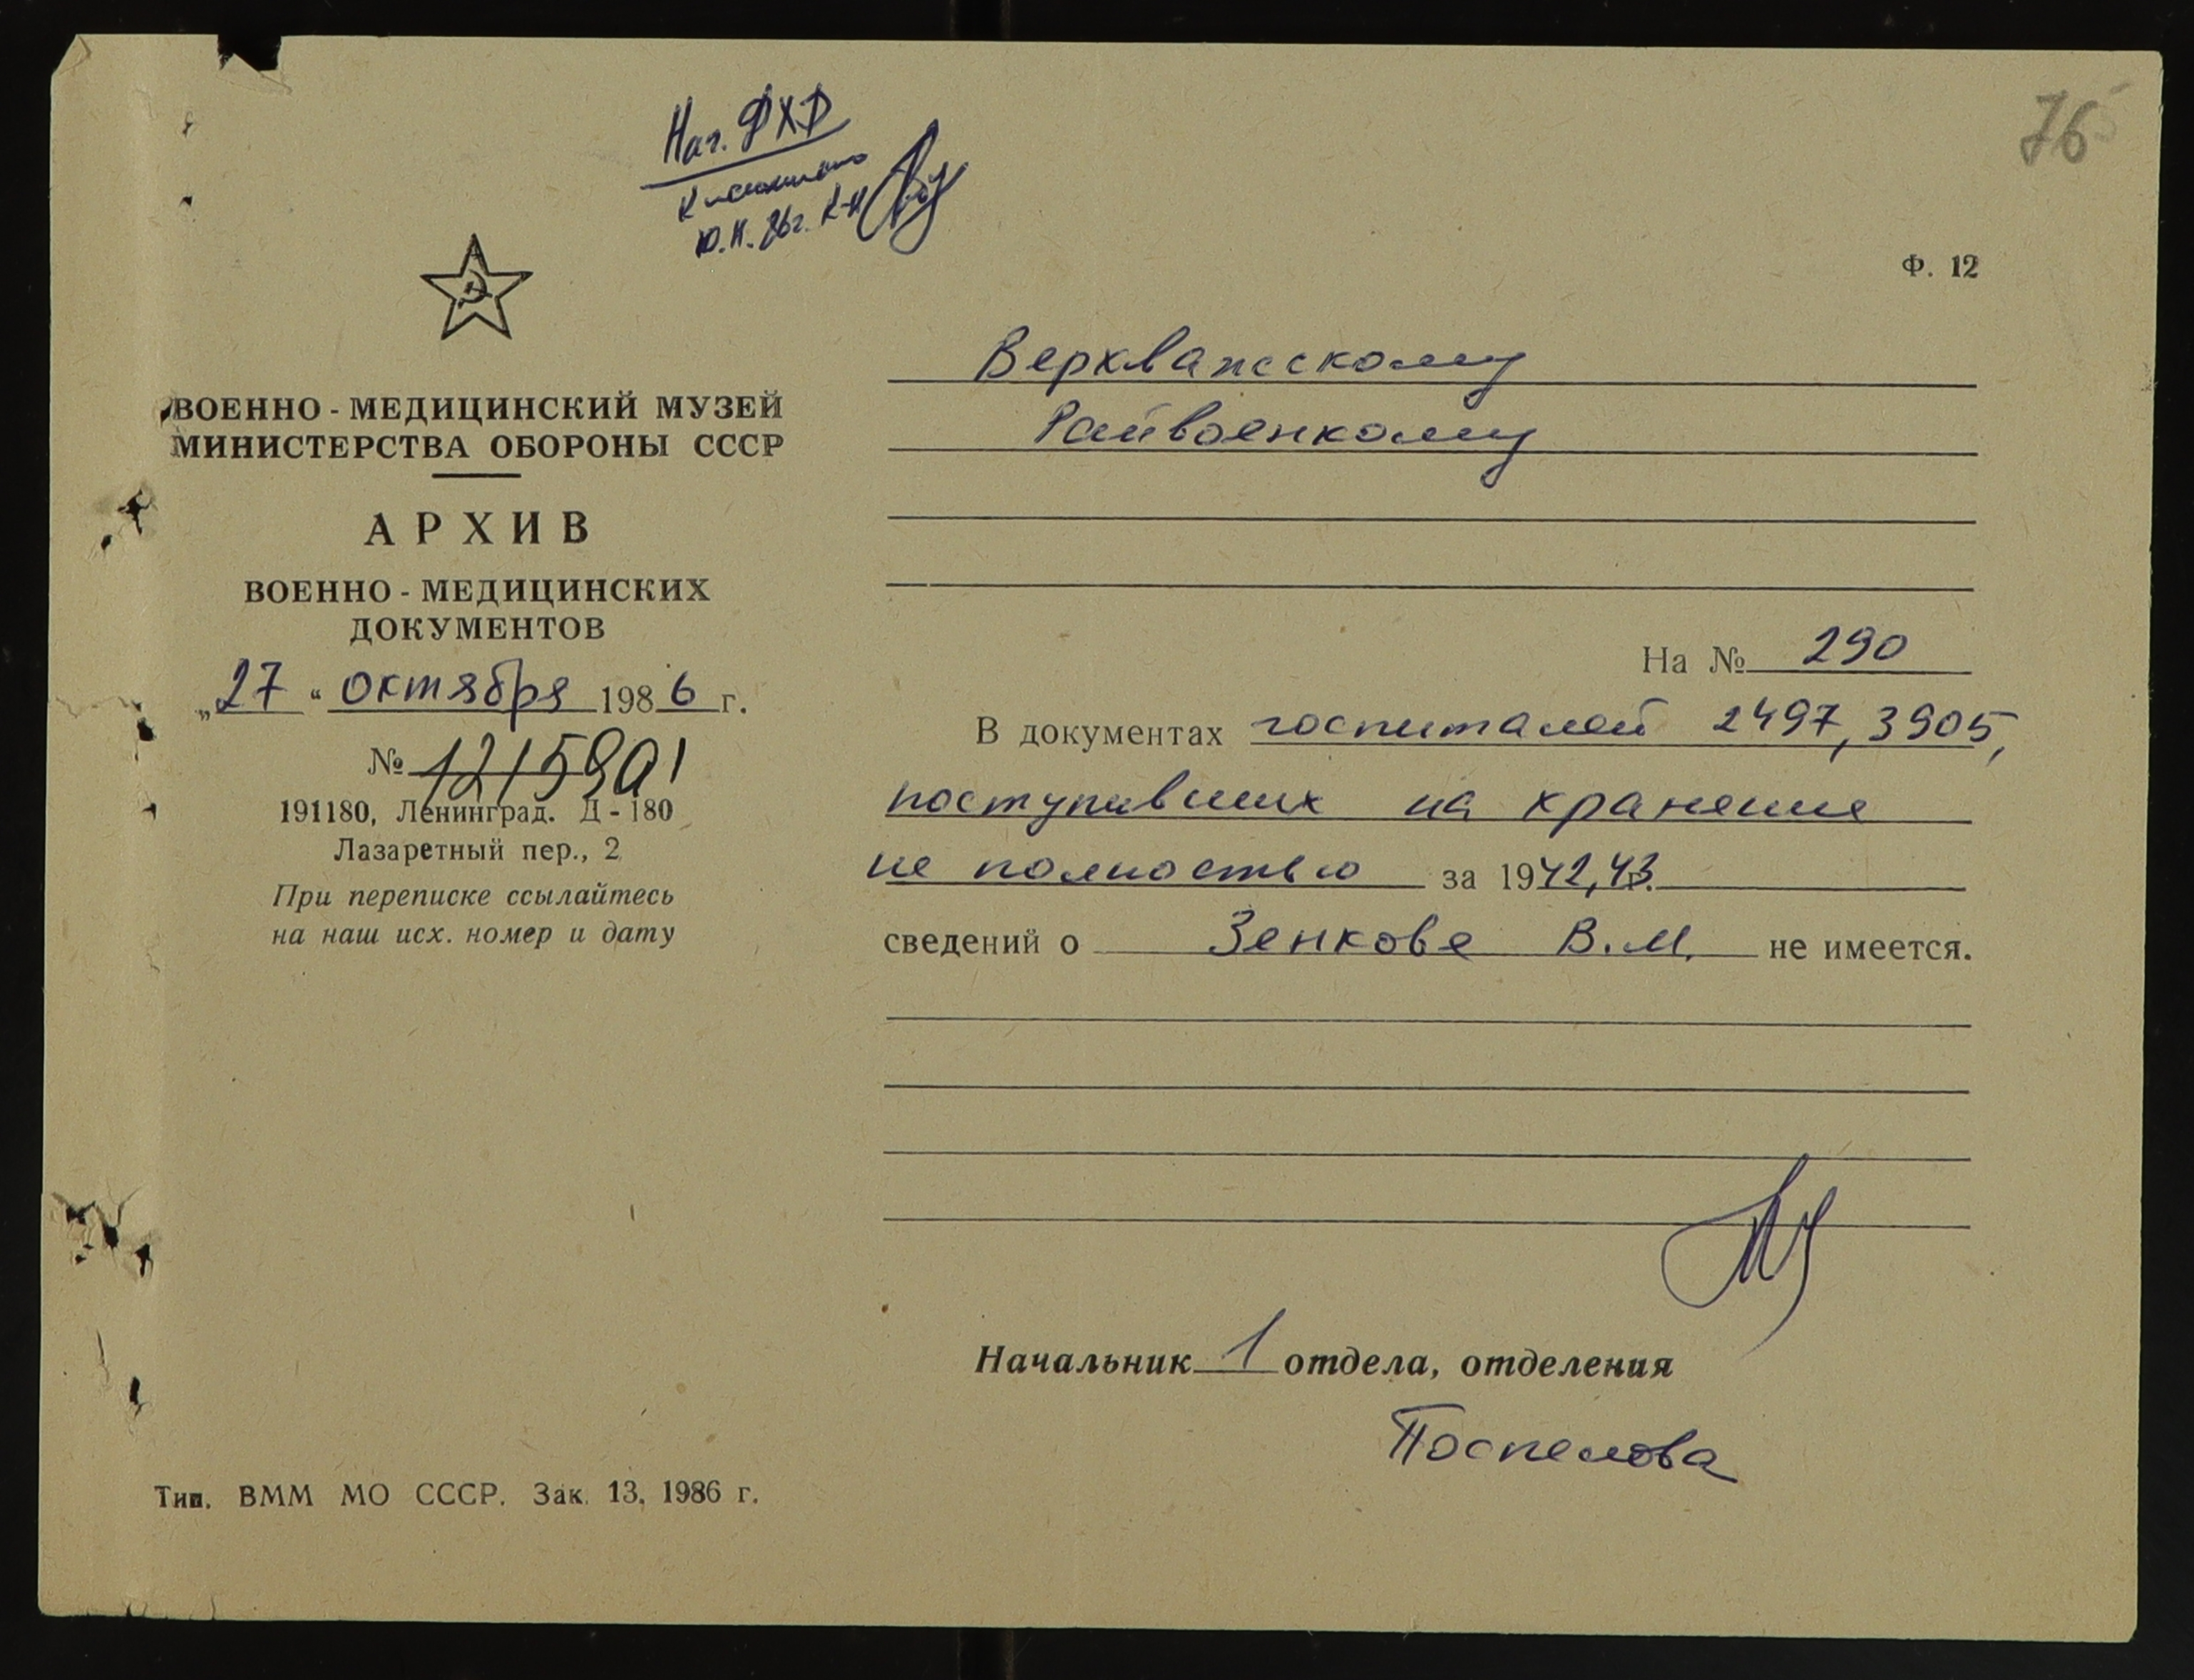 Нач. ФХД
10.11.86г. к-н
76
Ф. 12
ВОЕННО - МЕДИЦИНСКИЙ МУЗЕЙ
МИНИСТЕРСТВА ОБОРОНЫ СССР
АРХИВ
ВОЕННО - МЕДИЦИНСКИХ
ДОКУМЕНТОВ
„27“ октября 1986 г.
№ 1215901
191180, Ленинград. Д - 180
Лазаретный пер., 2
При переписке ссылайтесь
на наш исх. номер и дату
Верхважскому
Райвоенкому
На № 290
В документах госпиталей 2497, 3905,
поступивших на хранение
не полностью за 1942, 43.
сведений о Зенкове В.М. не имеется.
Начальник 1 отдела, отделения
Поспелова
Тип. ВММ МО СССР. Зак. 13, 1986 г.